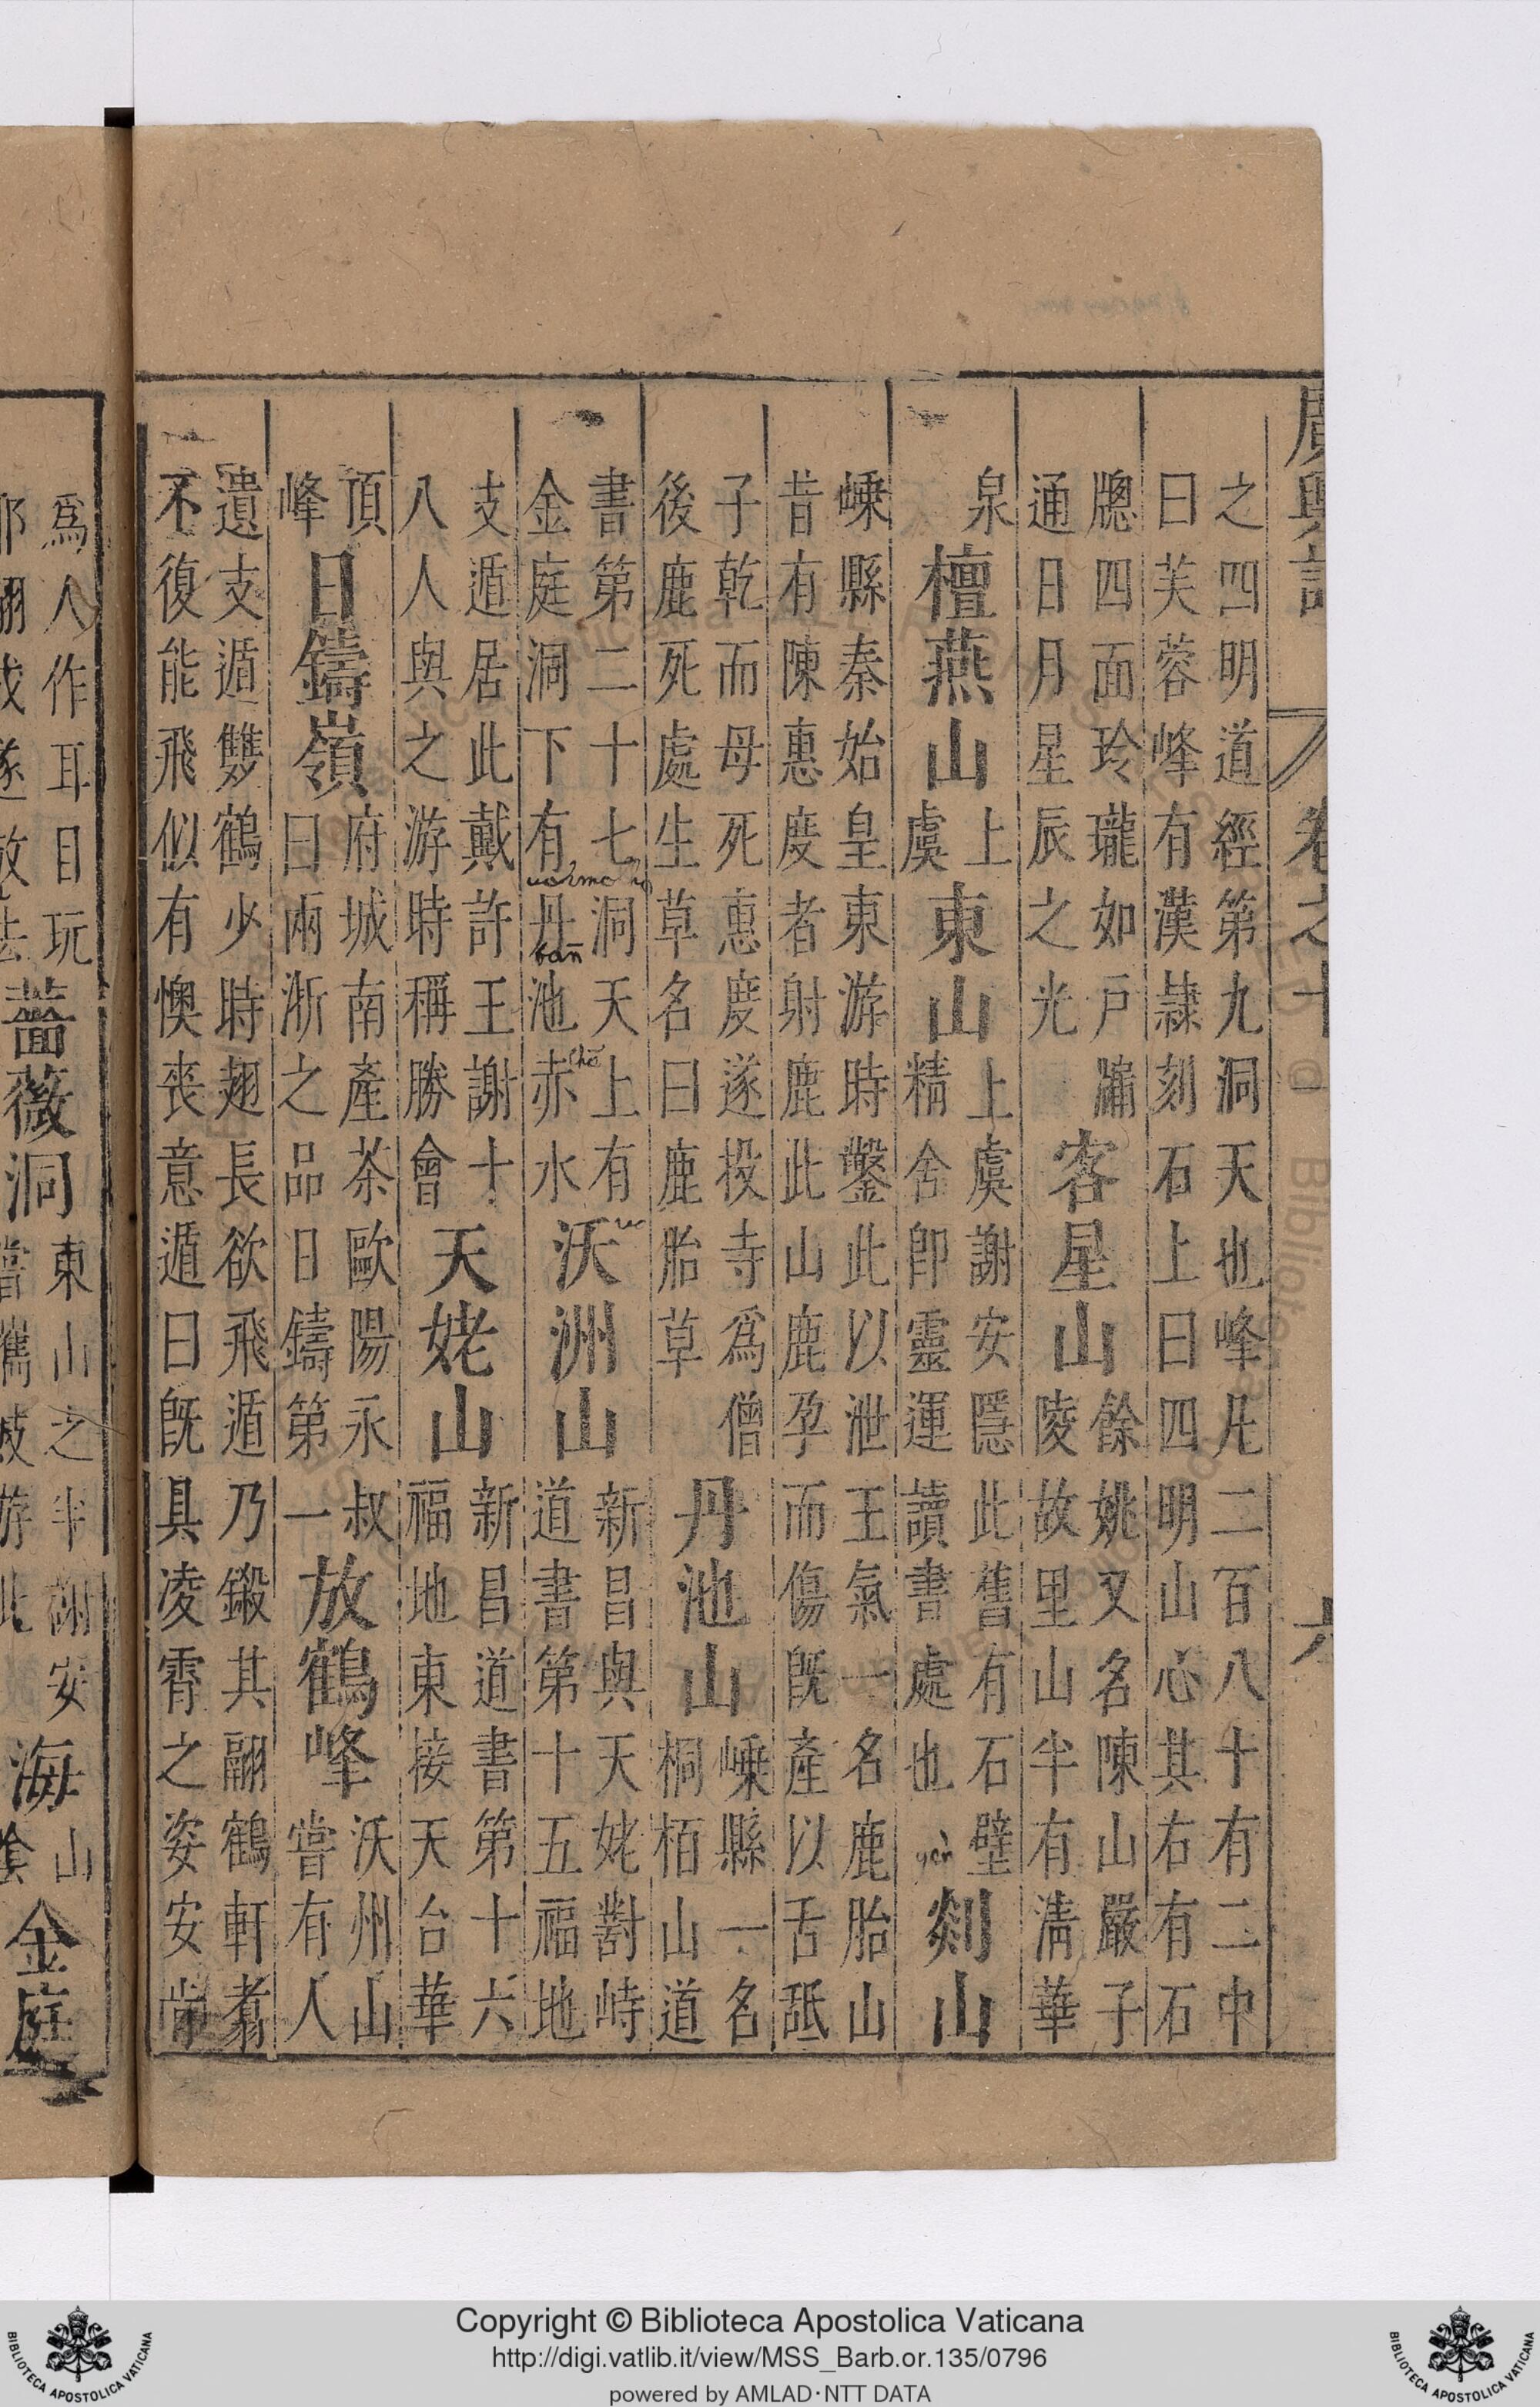 廣輿記 卷之十一 六
之四明道經第九洞天也峰凡二百八十有二中
曰芙蓉峰有漢隸刻石上曰四明山心其右有石
牕四面玲瓏如戶牖
通日月星辰之光
客星山
餘姚又名陳山嚴子
陵故里山半有淸華
泉
檀燕山
上
虞
東山
上虞謝安隱此舊有石壁
精舍卽靈運讀書處也
yen
剡山
嵊縣秦始皇東游時鑿此以泄王氣一名鹿胎山
昔有陳惠度者射鹿此山鹿孕而傷旣產以舌舐
子乾而母死惠度遂投寺爲僧
後鹿死處生草名曰鹿胎草
丹池山
嵊縣一名
桐栢山道
書第二十七洞天上有
金庭洞下有丹池赤水
ban
che
沃洲山
新昌與天姥對峙
道書第十五福地
支遁居此戴許王謝十
八人與之游時稱勝會
天姥山
新昌道書第十六
福地東接天台華
頂
峰
日鑄嶺
府城南產茶歐陽永叔
曰兩浙之品日鑄第一
放鶴峰
沃州山
嘗有人
遺支遁雙鶴少時翅長欲飛遁乃鍛其翮鶴軒翥
不復能飛似有懊喪意遁曰旣具凌霄之姿安肯
爲人作耳目玩
遂放去
薔薇洞
東山之半謝安
嘗攜妓游此
海
山
金庭
Copyright © Biblioteca Apostolica Vaticana
http://digi.vatlib.it/view/MSS_Barb.or.135/0796
powered by AMLAD·NTT DATA
BIBLIOTECA APOSTOLICA VATICANA
BIBLIOTECA APOSTOLICA VATICANA